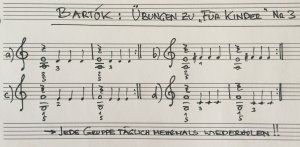 BARTÓK: ÜBUNGEN ZU „FÜR KINDER" No 3
a) b)
c) d)
→ JEDE GRUPPE TÄGLICH MEHRMALS WIEDERHOLEN!!